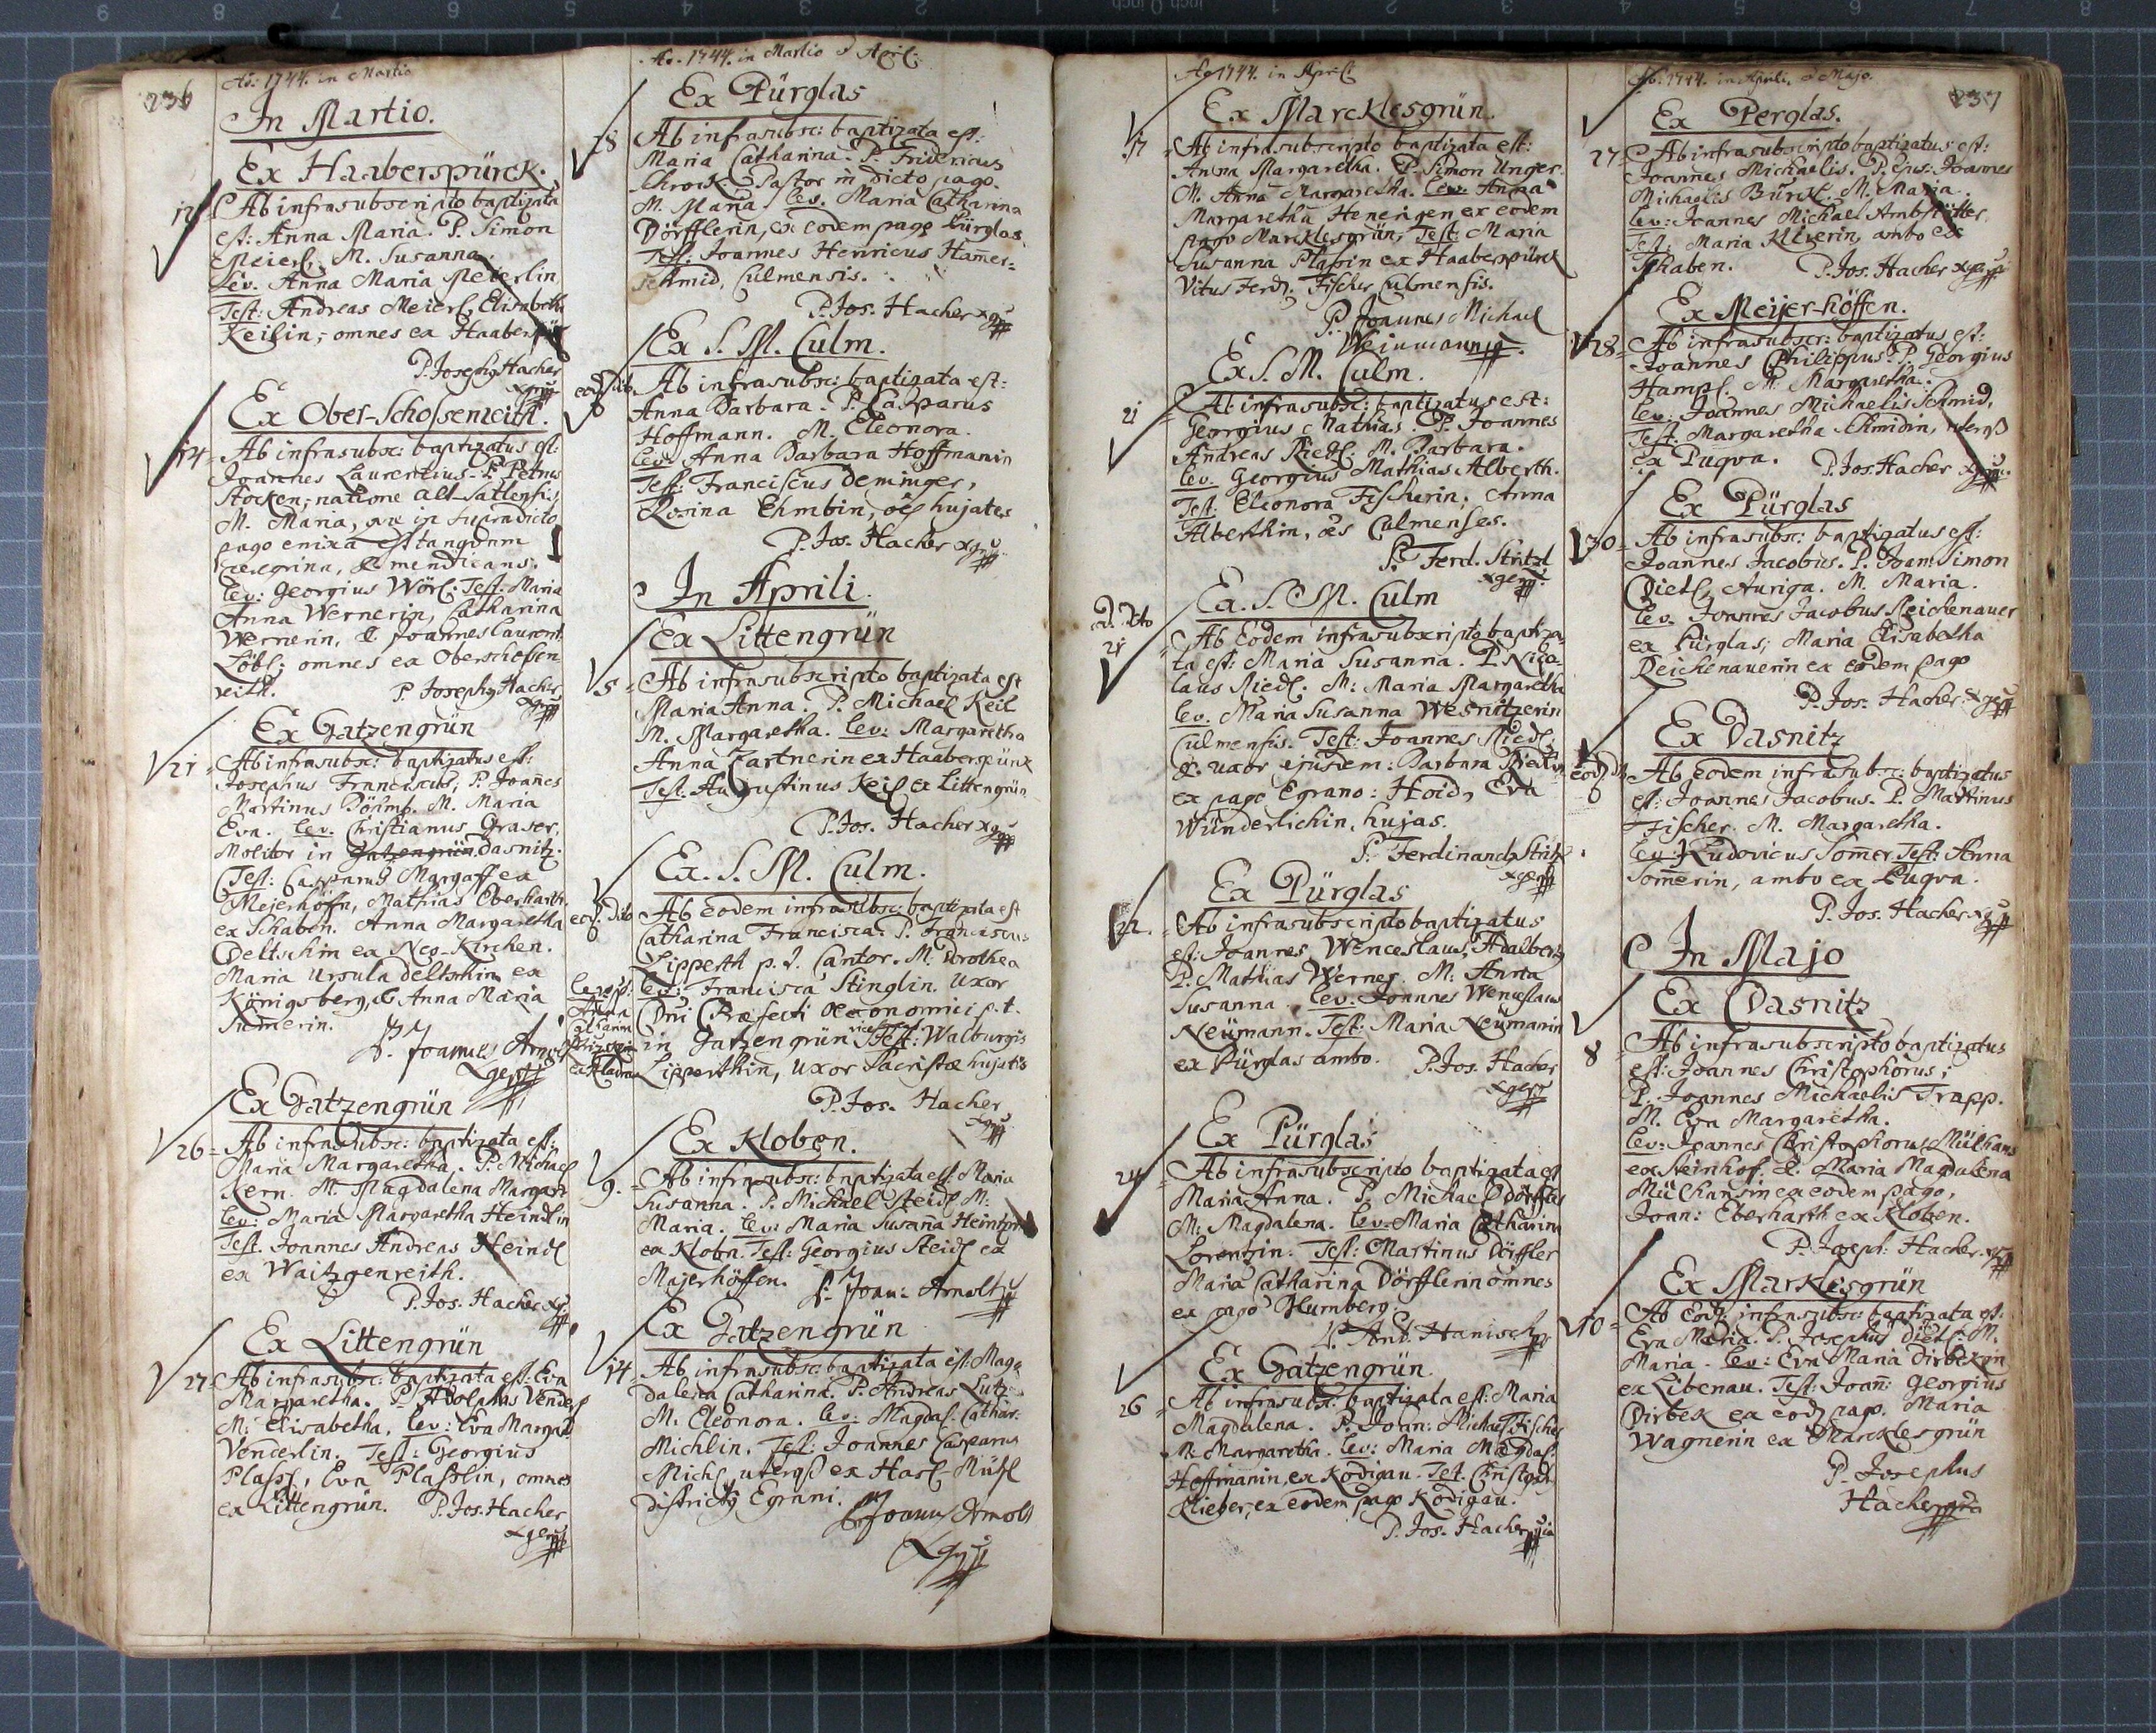 236
Ao: 1744. in Martio
In Martio.
Ex Haaberspürck.
12 Ab infrasubscripto baptizata
est: Anna Maria. P. Simon
Meierl. M. Susanna.
Lev. Anna Maria Meierlin
Test: Andreas Meierl, Elisabetha
Keilin, omnes ex Haaberspürk
P. Josephg Hacher
Ex Ober-Schossenreith.
14 Ab infrasubsc: baptizatus est:
Joannes Laurentius. P. Petrus
Stocken, natione alt-Satlensis,
M. Maria, quæ in supradicto
pago enixa est tanquam
peregrina, & mendicans.
lev: Georgius Wörl. Test. Maria
Anna Wernerin, Catharina
Wernerin, & Joannes Laurent.
Löbl; omnes ex Oberschossen
reith. P. Josephg Hacher
Ex Gatzengrün
21 Ab infrasubsc: baptizatus est:
Josephus Franciscus; P. Joanes
Martinus Böhm. M. Maria
Eva. lev. Christianus Graser,
Molitor in Gatzengrün Dasnitz.
Test: Casparus Margaff ex
Mejerhöffn, Mathias Eberharth
ex Schaben. Anna Margaretha
Deltschin ex Neo-Kirchen.
Maria Ursula Deltschin ex
Königsberg, & Anna Maria
P. Joannes Arnolt
Ex Gatzengrün
26 Ab infrasubsc: baptizata est:
Maria Margaretha. P. Michael
Kern. M. Magdalena Margar:
lev: Maria Margaretha Heindlin
Test. Joannes Andreas Heindl
ex Waitzgenreith.
P. Jos. Hacher
Ex Littengrün
27 Ab infrasubsc: baptizata est: Eva
Margaretha. P. Adolphus Venderl
M: Elisabetha. lev: Eva Margar:
Venderlin. Test: Georgius
Plassl, Eva Plasslin, omnes
ex Littengrün. P. Jos. Hacher
Ao. 1744. in Martio & April:
Ex Pürglas
28 Ab infrasubsc: baptizata est:
Maria Catharina. P. Fridericus
Schrock. Pastor in dicto pago.
M. Maria. lev. Maria Catharina
Dörfflerin, ex eodem pago Pürglas
Test: Joannes Henricus Hamer=
schmid, Culmensis.
P. Jos. Hacher
Ex S. M. Culm.
eod: dito Ab infrasubsc: baptizata est:
Anna Barbara. P. Casparus
Hoffmann. M. Eleonora.
lev: Anna Barbara Hoffmanin
Test: Franciscus Deminger,
Rosina Ehmbin, oēs hujates
P. Jos. Hacher
In Aprili.
Ex Littengrün
5 Ab infrasubscripto baptizata est
Maria Anna. P. Michael Keil
M. Margaretha. lev: Margaretha
Anna Zartnerin ex Haaberspürck
Test. Augustinus Keil ex Littengrün
P. Jos. Hacher
Ex. S. M. Culm.
eod: dito Ab eodem infrasubsc: baptizata est
Catharina Francisca. P. Franciscus
Lippertt p. t. Cantor. M. Dorothea
lev: Francisca Stinglin, uxor
Dni Præfecti Oeconomici p. t.
in Gatzengrün Test: Walburgis
Lipperthin, uxor Sacristæ hujatis
P. Jos. Hacher
Ex Kloben.
9. Ab infrasubsc: baptizata est: Maria
Susanna. P. Michael Steidl M:
Maria. lev: Maria Susana
ex Klobn. Test: Georgius Steidl ex
Majerhöffen. P. Joan: Arnolt
Ex Gatzengrün
14 Ab infrasubsc: baptizata est: Mag=
dalena Catharina. P. Andreas Lutz
M. Eleonora. lev: Magdal. Cathar:
Michlin. Test: Joannes Casparus
Michl, uterqß ex Harl-Mühl
districtg Egrani.
P. Joannes Arnolt
Ao 1744. in April
Ex Marcklesgrün.
17 Ab infrasubscripto baptizata est:
Anna Margaretha. P. Simon Unger.
M. Anna Margaretha. lev: Anna
Margaretha ex eodem
pago Marcklesgrün, Test: Maria
Susanna Plassin ex Haaberspürck
Vitus Ferd. Fischer Culmensis.
P. Joannes Michael
Weinmann
Ex S. M. Culm.
21 Ab infrasubsc: baptizatus est:
Georgius Mathias. P. Joannes
Andreas Riedl. M. Barbara.
lev. Georgius Mathias Alberth.
Test. Eleonora Fischerin, Anna
Alberthin, oēs Culmenses.
P. Ferd. Stritzl
Ex. S. M. Culm
d. dito
21 Ab eodem infrasubscripto baptiza=
ta est: Maria Susanna. P. Nico=
laus Riedl. M: Maria Margaretha
lev. Maria Susanna Wesnitzerin
Culmensis. Test: Joannes Riedl,
& uxor ejusdem: Barbara Riedlin
ex pago Egrano: Eva
Wünderlichin, hujas.
P. Ferdinandg Stritzl
Ex Pürglas
22. Ab infrasubscripto baptizatus
est: Joannes Wenceslaus Adalberg
P. Mathias Werner. M: Anna
Susanna. lev: Joannes Wenceslaus
Neümann. Test: Maria Neümanin
ex Pürglas ambo. P. Jos. Hacher
Ex Pürglas
24 Ab infrasubscripto baptizata est
Maria Anna. P. Michael Dörffler
M: Magdalena. lev: Maria Catharina
Lorentzin. Test: Martinus Döffler
Maria Catharina Dörfflerin omnes
ex pago Blumberg.
P. Ant. Hanisch
Ex Gatzengrün.
26 Ab infrasubsc: baptizata est: Maria
Magdalena. P. Joan: Michael Fischer
M: Margaretha. lev: Maria Magdal.
Hoffmanin, ex Ködigau. Test. Christoph
Klieber, ex eodem pago Ködigau.
P. Jos. Hacher
237
Ao: 1744. in Aprili, & Majo.
Ex Perglas.
27 Ab infrasubscripto baptizatus est:
Joannes Michaelis. P. Ejus: Joannes
Michaelis Bürckl. M. Maria.
lev: Joannes Michael
Test: Maria Klierin, ambo ex
Schaben. P. Jos. Hacher
Ex Meijer-höffen.
28 Ab infrasubscr: baptizatus est:
Joannes Philippus. P. Georgius
Hampl. M: Margaretha.
lev. Joannes Michaelis Schmid,
Test. Margaretha Schmidin, uterqß
ex Pugva. P. Jos. Hacher
Ex Pürglas
30 Ab infrasubsc: baptizatus est:
Joannes Jacobus. P. Joan: Simon
Dietl, Auriga. M. Maria.
lev. Joannes Jacobus Reichenauer
ex Pürglas; Maria Elisabetha
Reichenauerin ex eodem pago
P. Jos. Hacher
Ex Dasnitz
eod: d. Ab eodem infrasubsc: baptizatus
est: Joannes Jacobus. P. Martinus
Fischer. M. Margaretha.
lev: Ludovicus Somer. Test: Anna
Somerin, ambo ex Pugva.
P. Jos. Hacher
In Majo
Ex Dasnitz
8 Ab infrasubscripto baptizatus
est: Joannes Christophorus;
P. Joannes Michaelis Trapp.
M. Eva Margaretha.
lev: Joannes Christophorus Mülhans
ex Steinhof. & Maria Magdalena
Mülhansin ex eodem pago,
Joan: Eberharth ex Kloben.
P. Joseph: Hacher
Ex Marklesgrün
10 Ab Eod: infrasubsc: baptizata est:
Eva Maria. P. Josephus Dietl. M.
Maria. lev: Eva Maria Dirbekin
ex Libenau. Test: Joan: Georgius
Dirbek ex eod: pago. Maria
Wagnerin ex Marcklesgrün
P. Josephus
Hacher